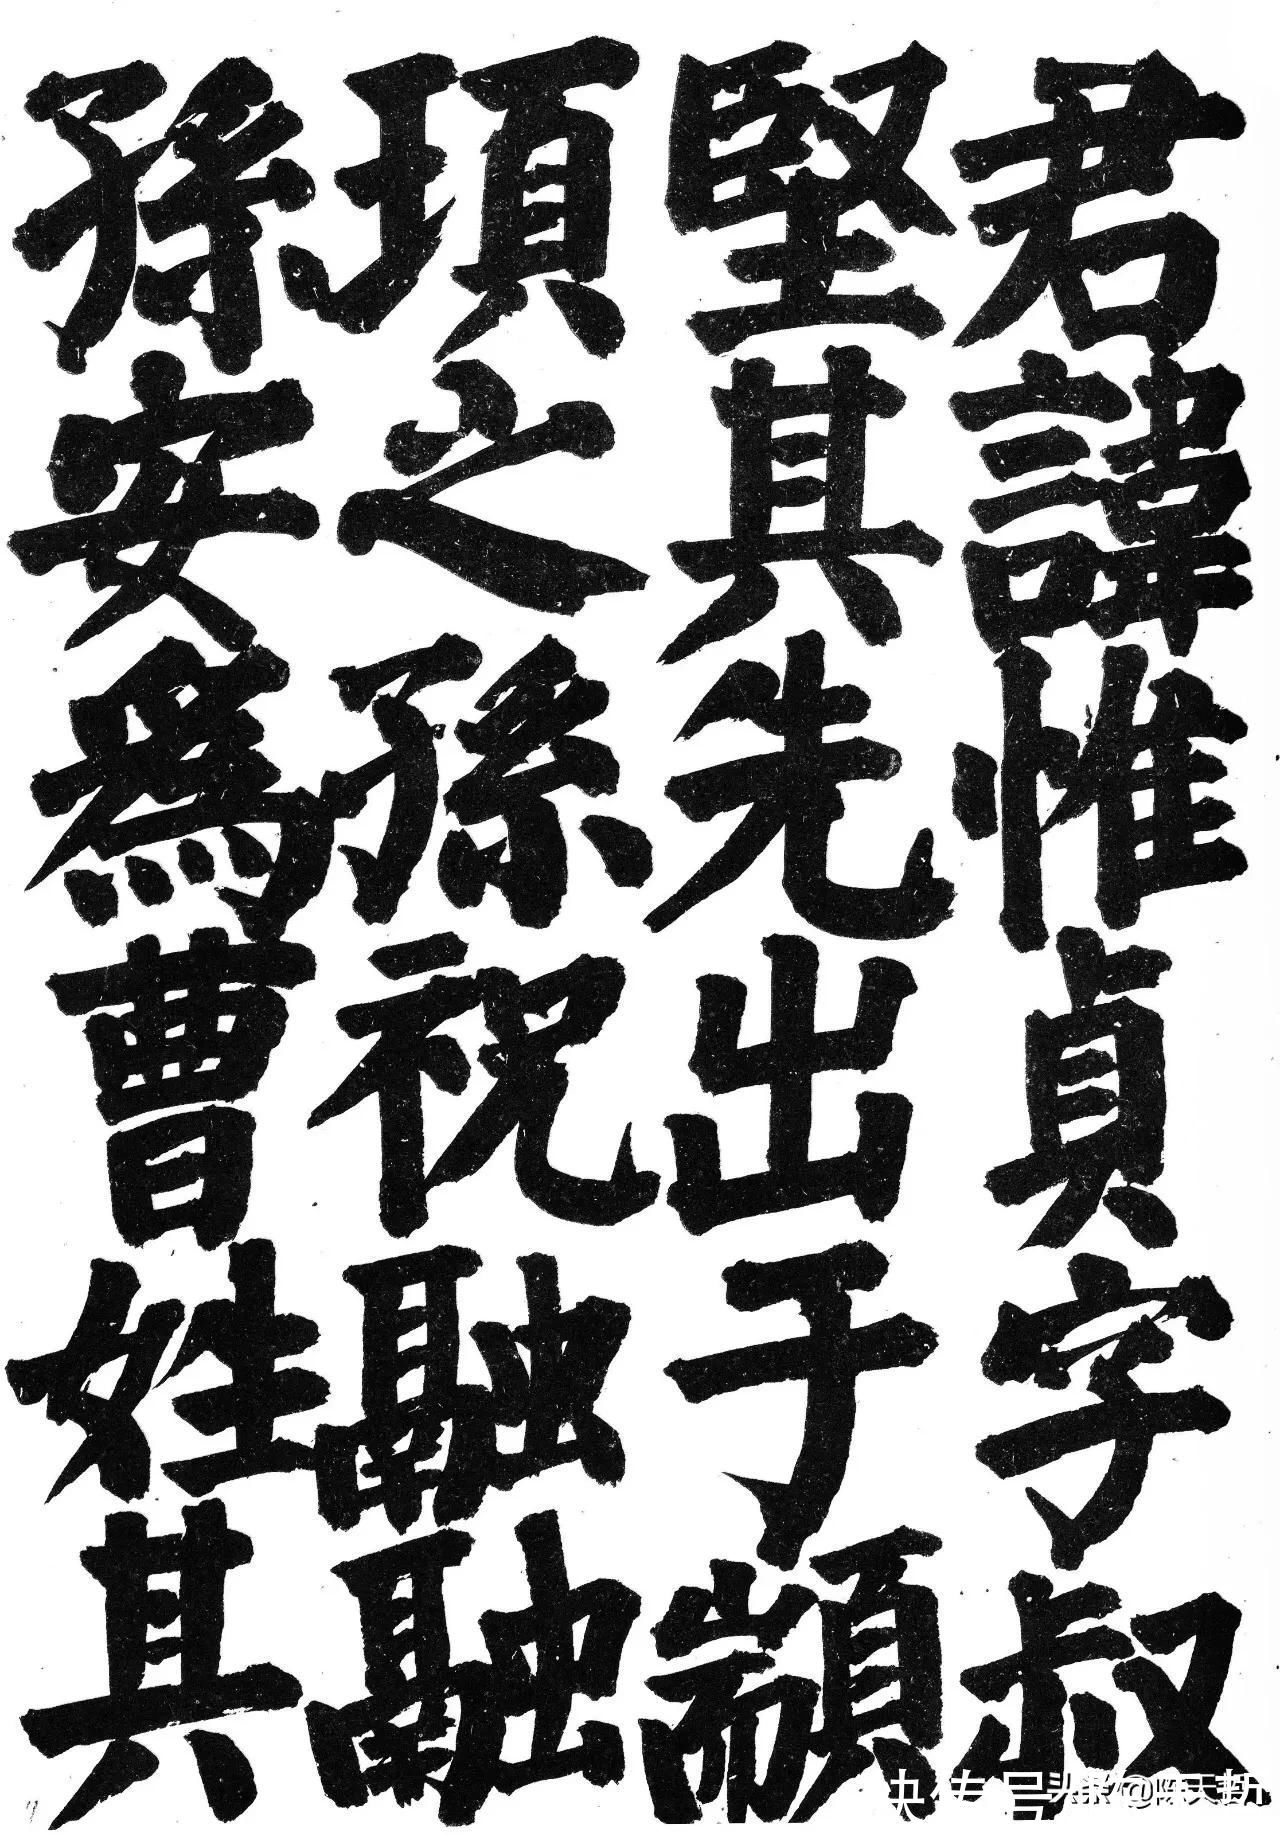 君諱惟貞字叔
堅其先出于顓
頊之孫祝融融
孫安爲曹姓其
头条@陈天